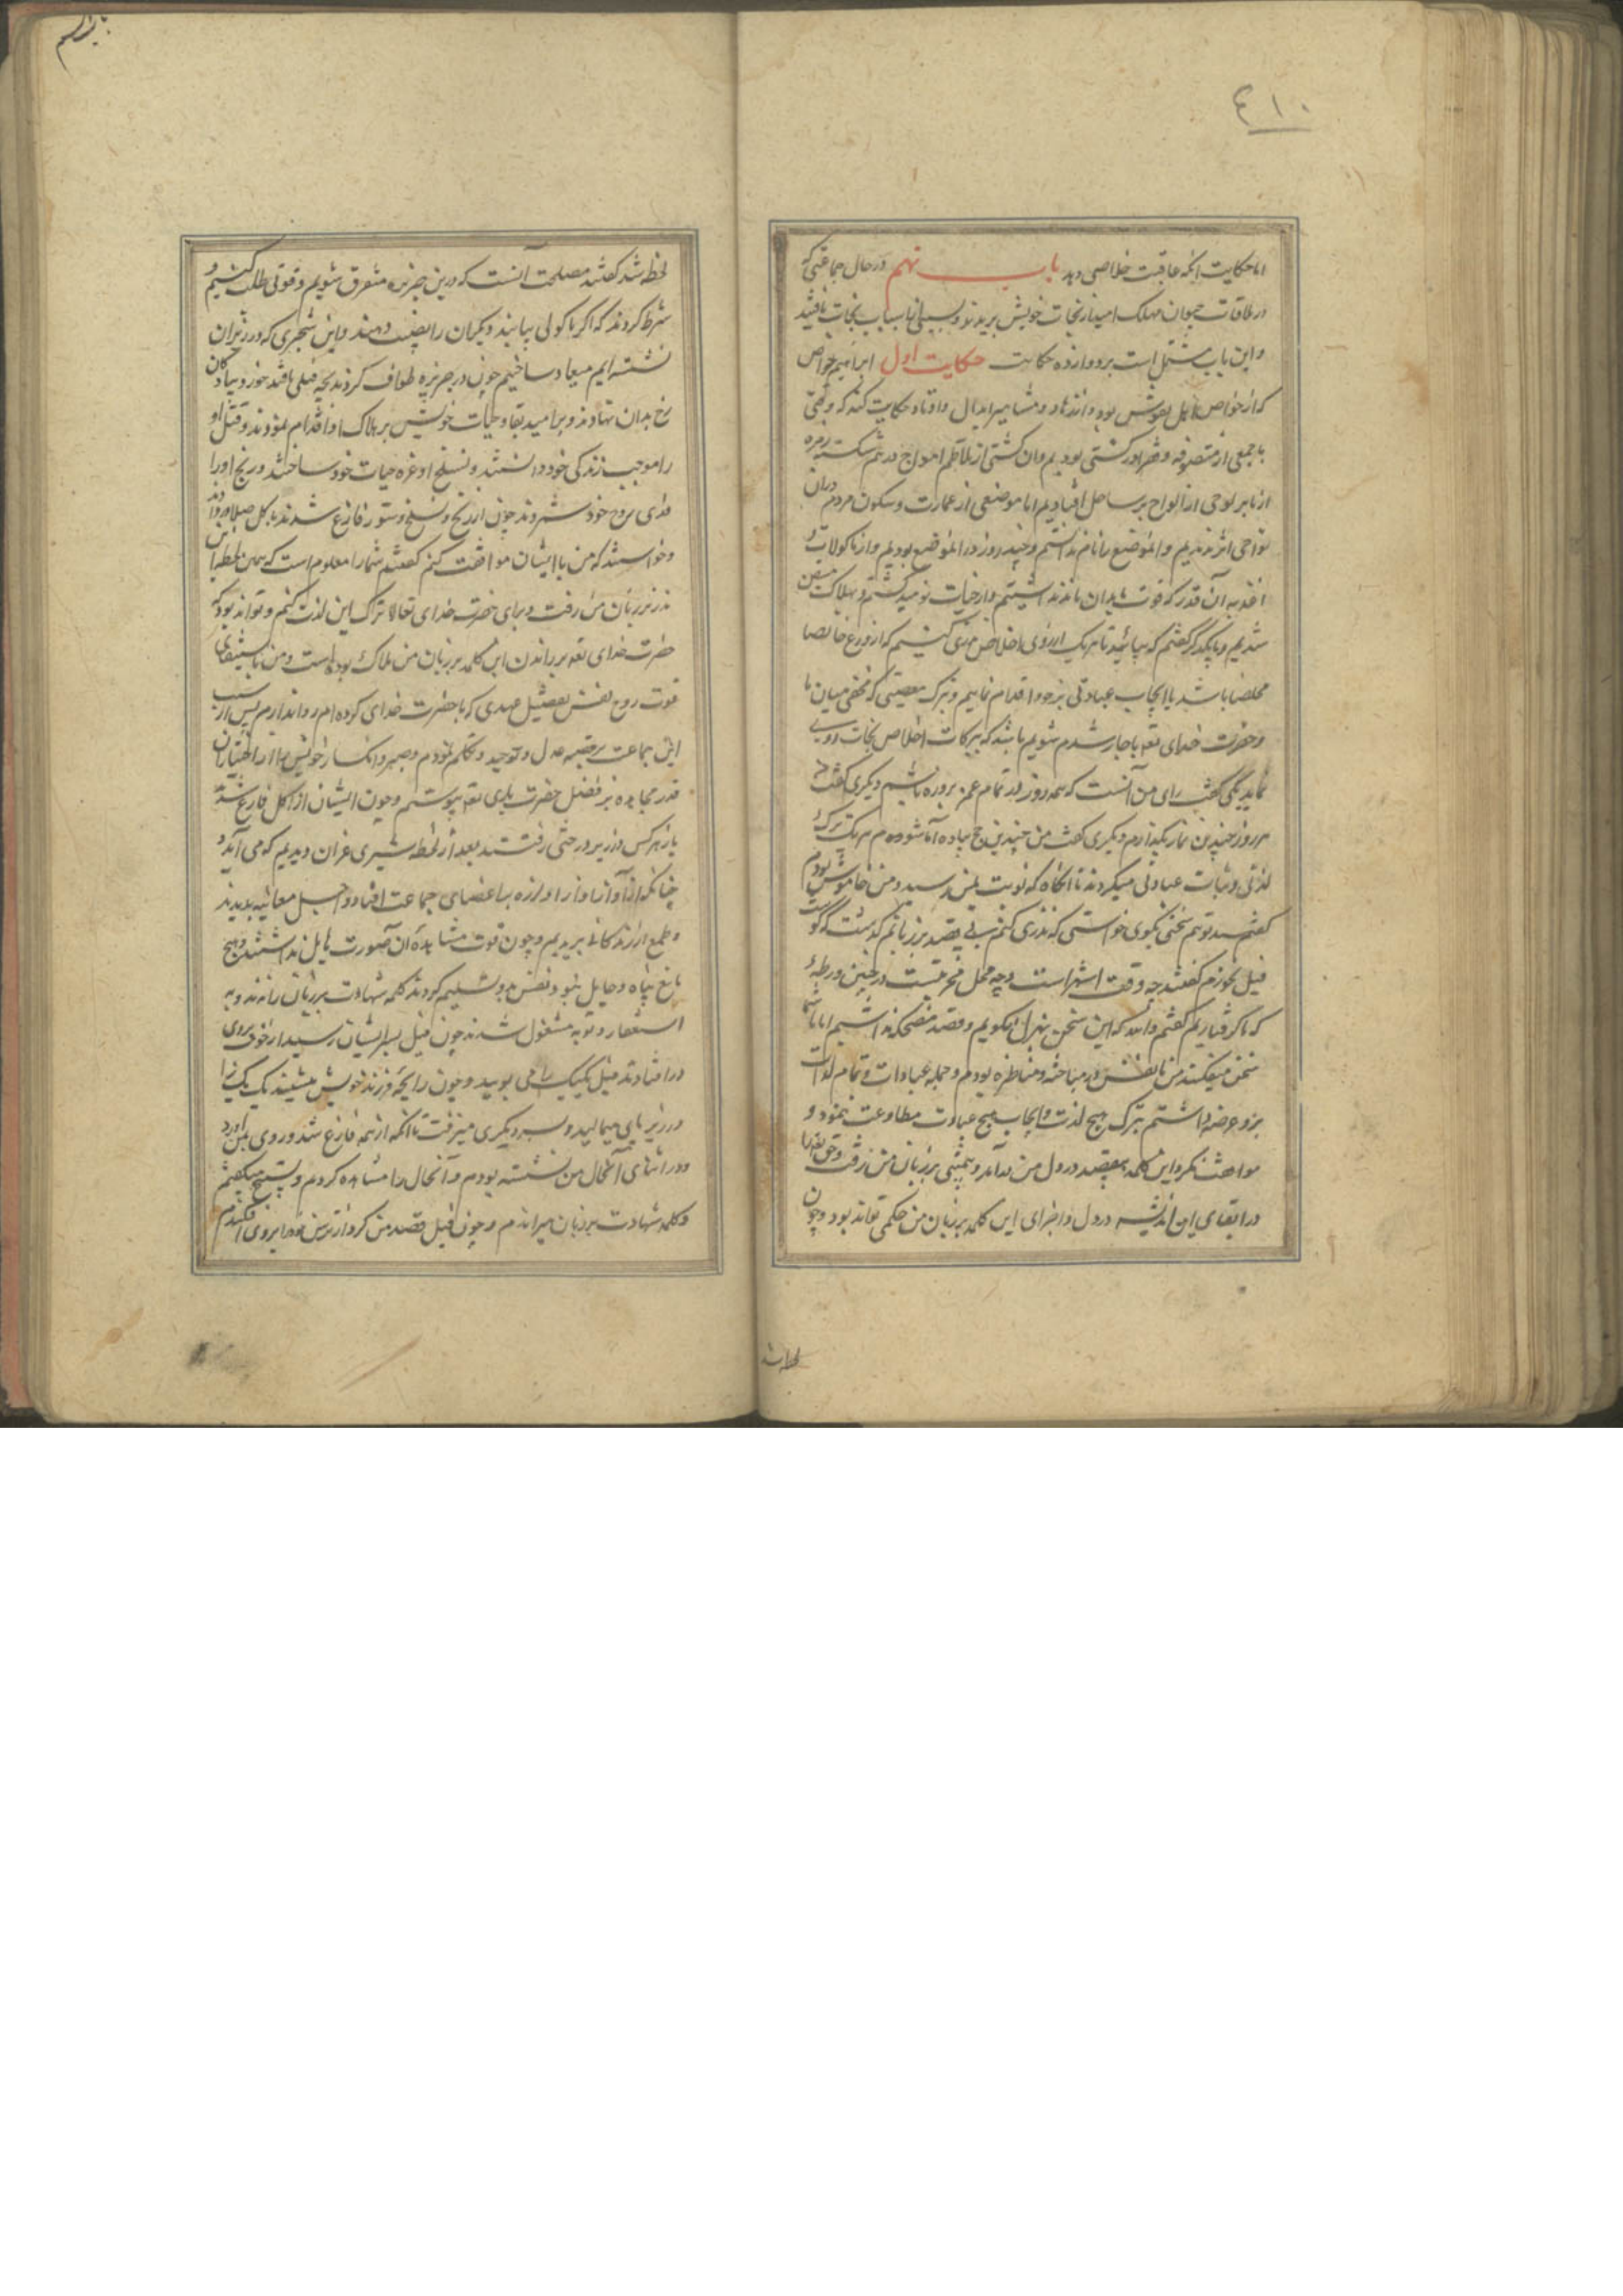 ٤١٠
اما حکایت آنکه عاقبت خلاصی دید باب نهم در حال جماعتی که
در ملاقات حیوان مهلک امید از نجات خویش بریدند و بسببی از اسباب نجات یافتند
و این باب مشتمل است بر دوازده حکایت حکایت اول ابراهیم خواص
که از خواص اهل بود و از زهاد و مشاهیر ابدال و اوتاد حکایت کند که وقتی
با جمعی از متصوفه در کشتی بودیم و آن کشتی از تلاطم امواج در هم شکست
ما بر لوحی از الواح بر ساحل افتادیم اما موضعی از عمارت و سکون مردم در آن
نواحی اثر ندیدیم و آن موضع را نام ندانستیم و چند روز در آن موضع بودیم و از ماکولات و
اغذیه آن قدر که قوت بدان ماند نداشتیم و از حیات نومید گشتیم و بهلاک متیقن
شدیم و با یکدیگر گفتیم که بیائید تا هر یک از روی اخلاص نذری کنیم که
مخلصا باشد یا ایجاب عبادتی بر خود اقدام نماییم و ترک معصیتی که مخفی میان ما
و حضرت خدای تعه باشد که ببرکات اخلاص نجات روی
نماید یکی گفت رای من آنست که همه روز در تمام عمر بروزه باشم دیگری گفت
هر روز چندین نماز بگذارم و دیگری گفت من چندین حج پیاده هر یک ترک
لذتی و ثبات عبادتی میکردند تا آنگاه که نوبت بمن رسید و من خاموش بودم
گفتند تو هم سخنی بگوی خواستی که نذری کنم بی قصد بر زبانم گذشت که گوشت
فیل نخورم گفتند چه وقت است و چه محل در چنین ورطه
که ما گرفتاریم گفتم والله که این سخن بهزل نمیگویم و قصد مضحکه نداشتیم اما تا شما
سخن میگفتند من با نفس در مباحثه و مناظره بودم و جمله عبادات و تمام لذات
برو عرضه داشتم بترک هیچ لذت و ایجاب هیچ عبادت مطاوعت ننمود و
موافقت نکرد و این کلمه بیقصد در دل من درآمد و بر زبان من رفت و حق تعالی را
در ابقای این اندیشه در دل و اجرای این کلمه بر زبان من حکمتی تواند بود و چون
لحظه شد
لحظه شد گفتند مصلحت آنست که درین جزیره متفرق شویم و قوتی طلب کنیم و
شرط کردند که اگر ماکولی بیابند دیگران را نصیب دهند و این شجری که در زیر آن
نشسته ایم میعاد ساختیم چون در جزیره طواف کردند بچه فیلی یافتند خورد بیادگان
رخ بدان نهادند و بر امید بقا و حیات خویش بر هلاک او اقدام نمودند و قتل او
را موجب زندگی خود دانستند و سلخ او غره حیات خود ساختند و رنج او را
فدای روح خود شمردند چون از ذبح و سلخ فارغ شدند باکل صلا در دادند
و خواستند که من با ایشان موافقت کنم گفتم شما را معلوم است که همین لحظه این
نذر بر زبان من رفت و برای حضرت خدای تعالی ترک این لذت کنم و تواند بود که
حضرت خدای تعه بر راندن این کلمه بر زبان من هلاک بوده است و من باستیفای
قوت روح نفس عهدی که با حضرت خدای کرده ام روا ندارم پس از سبب
این جماعت بر قضیه عدل و توحید و تکلم نمودم و صبر و انکسار خویش را اختیار
قدر مجاهده بر فضل حضرت باری تعه پیوستم و چون ایشان از اکل فارغ شدند
باز هر کس در زیر درختی رفتند بعد از لحظه شیری غران دیدیم که می آید و
چنانکه از آواز او لرزه باعضای جماعت افتاد و اجل معاینه بدیدند
و طمع از زندگانی بریدیم و چون قوت مشاهده آن صورت هایل نداشتند و هیچ
مانع پناه و حایل نبود نفس بدو تسلیم کردند کلمه شهادت بر زبان راندند و به
استغفار و توبه مشغول شدند چون فیل بسر ایشان رسید از خوف بروی
در افتادند فیل یکیک را می بویید و چون رایحه فرزند خویش میشنید یک یک را
در زیر پای میمالید و بسر دیگری میرفت تا آنکه از همه فارغ شد و روی بمن آورد
و در اثنای آنحال من نشسته بودم و آنحال را مشاهده کردم و تسبیح میگفتم
و کلمه شهادت بر زبان میراندم و چون فیل قصد من کرد از ترس بروی افکندم